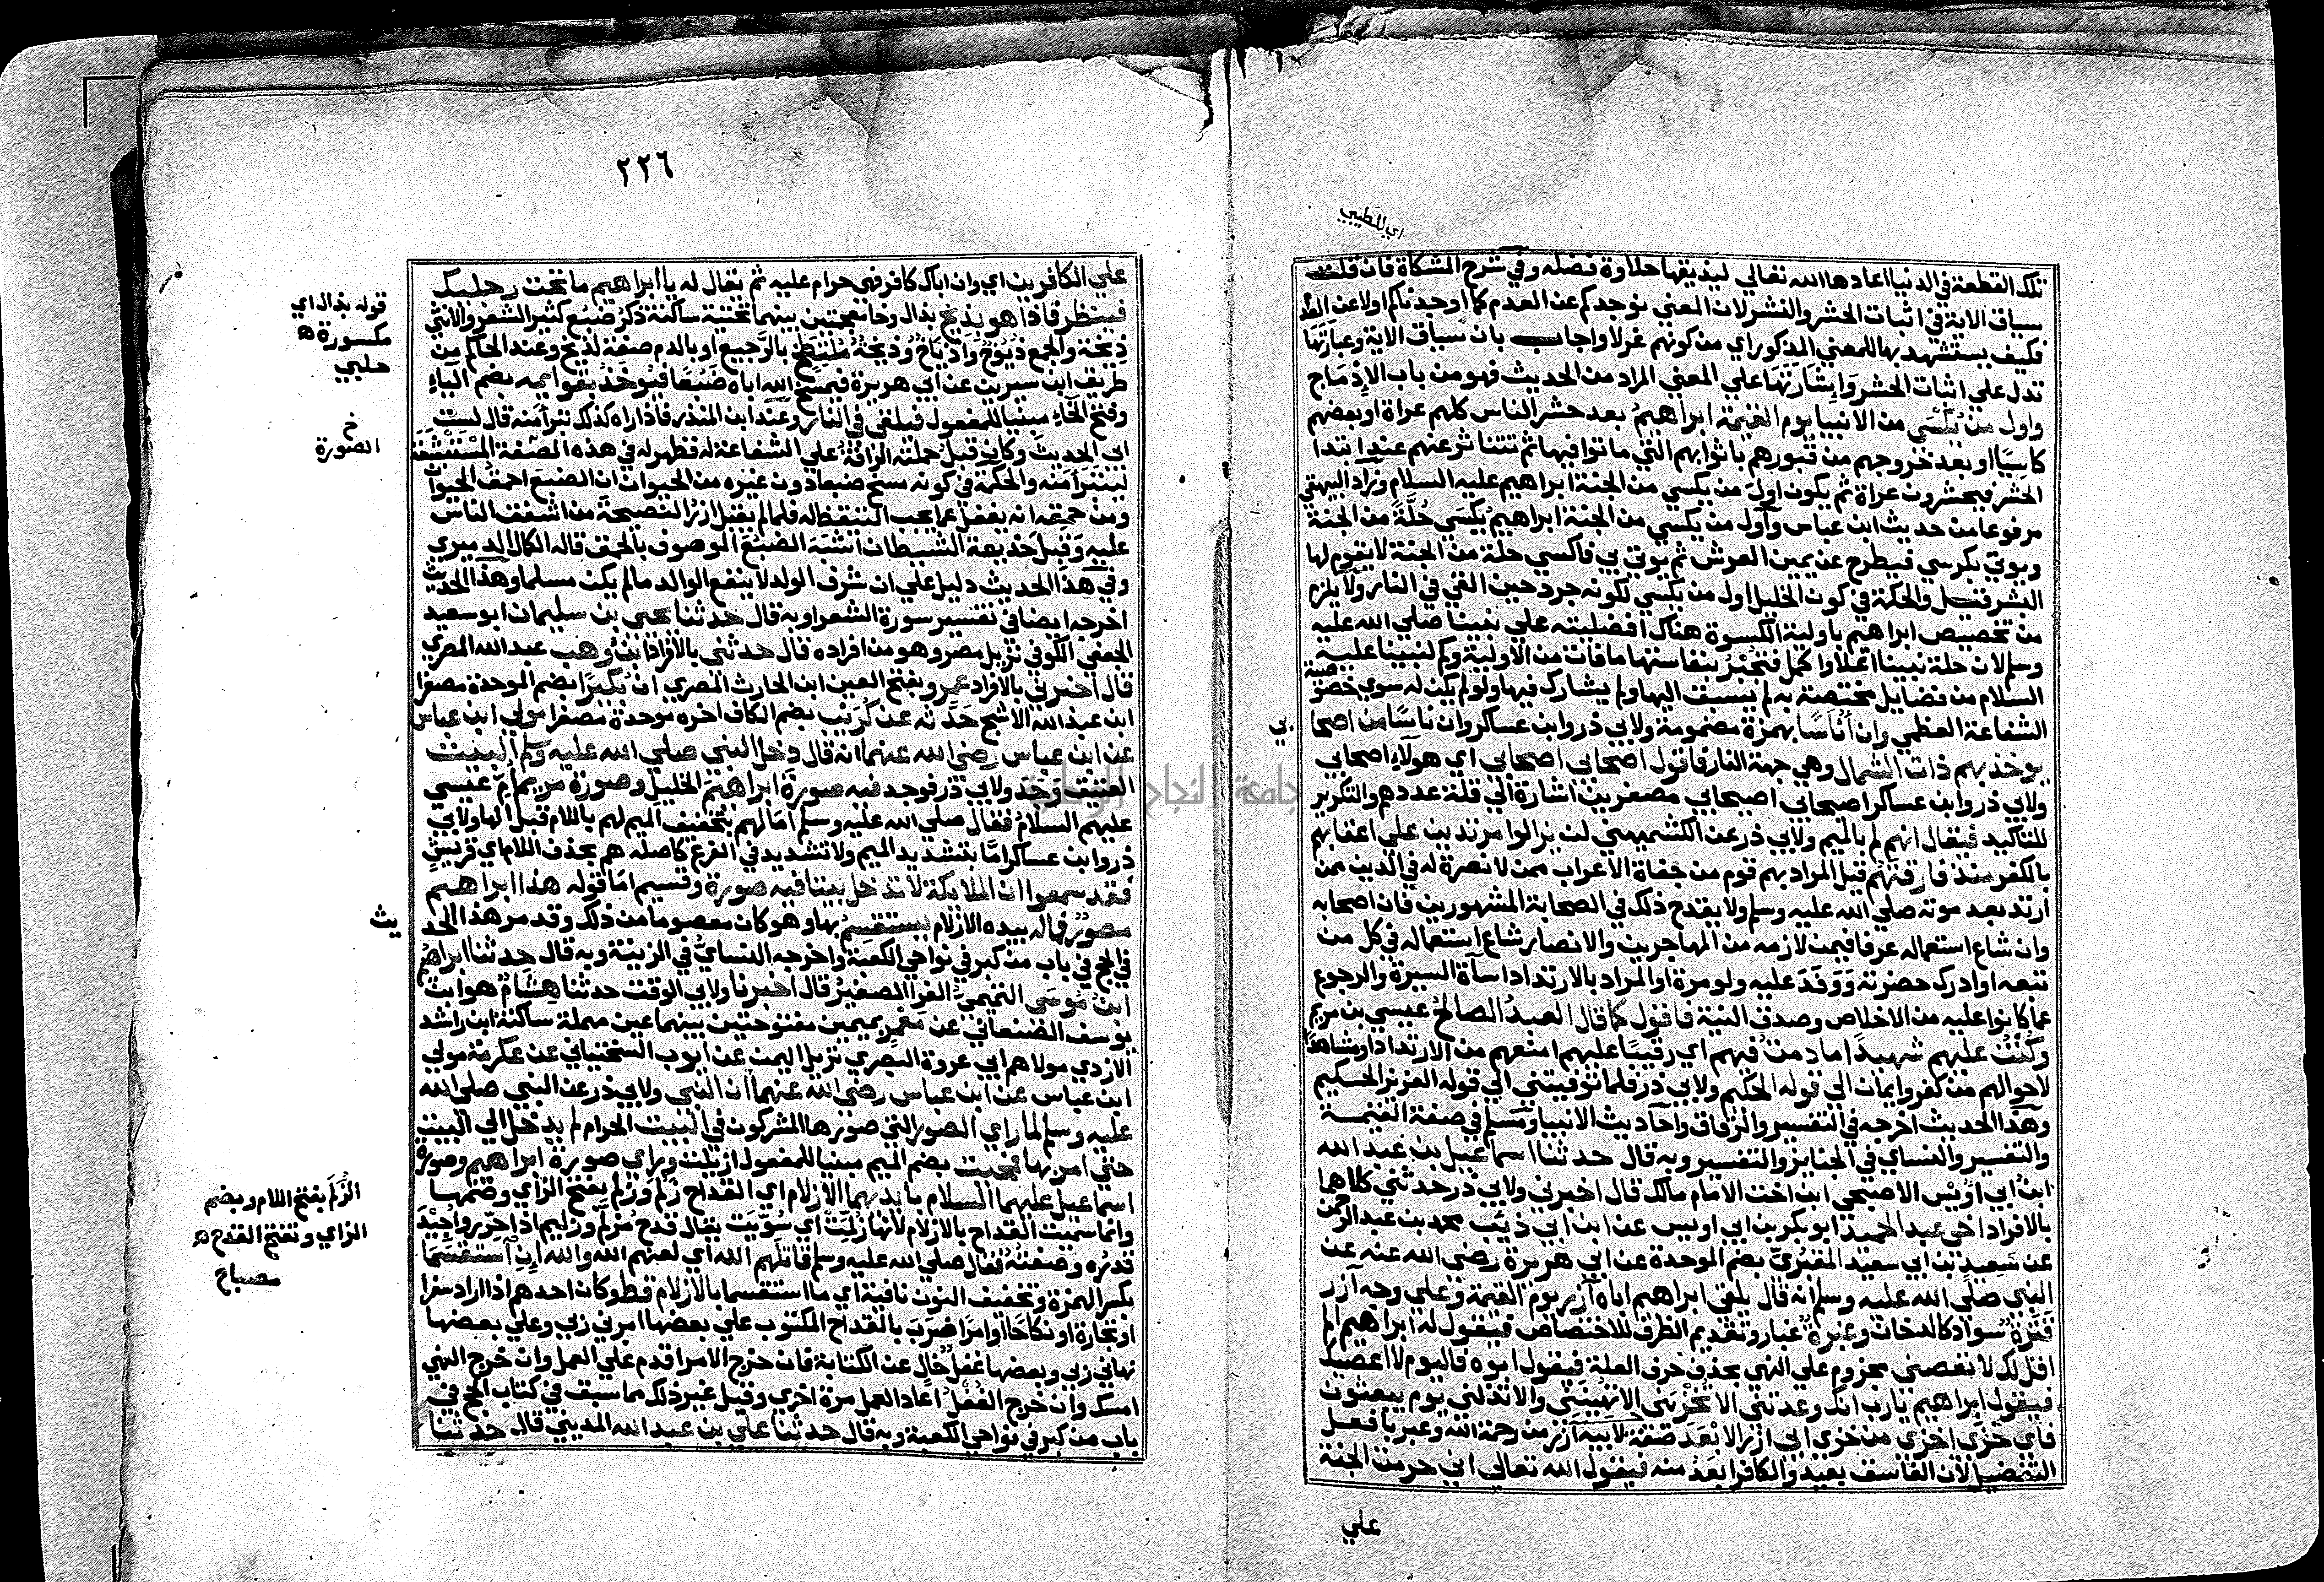 اي للطيبي
تلك القطعة في الدنيا اعادها الله تعالي ليذيقها حلاوة فضله وفي شرح المشكاة فان قلت
سياق الاية في اثبات الحشر والنشر لان المعني نوجدكم عن العدم كما اوجدناكم اولا عن العدم
فكيف يستشهد بها للمعني المذكور اي من كونهم غرلا واجاب بان سياق الاية وعبارتها
تدل علي اثبات الحشر وإشارتها علي المعني المراد من الحديث فهو من باب الإدماج
واول من يُكسَي من الانبيا يوم القيمة ابراهيمُ بعد حشر الناس كلهم عراة او بعضهم
كاسيًا او بعد خروجهم من قبورهم باثوابهم التي ماتوا فيها ثم تتناثر عنهم عند ابتدا
الحشر فيحشرون عراة ثم يكون اول من يكسي من الجنة ابراهيم عليه السلام وزاد البيهقي
مرفوعا من حديث ابن عباس وأول من يكسي من الجنة ابراهيمُ يكسَي حُلّةً من الجنة
ويوتي بكرسي فيطرح عن يمين العرش ثم يوتي بي فاكسي حلة من الجنة لا يقوم لها
البشر قيل والحكمة في كون الخليل اول من يكسي لكونه جرد حين القي في النار ولا يلزم
من تخصيص ابراهيم باولية الكسوة هناك افضليته علي نبينا صلي الله عليه
وسلم لان حلة نبينا اعلا واكمل فتجبُر بنفاستها ما فات من الاولية وكم لنبينا عليه
السلام من فضايل مختصة به لم يسبق اليها ولم يشارك فيها ولو لم يكن له سوي خصوصية
الشفاعة العظمي وان أُناسًا بهمزة مضمومة ولابي ذر وابن عساكر وان ناسًا من اصحا
بي
يوخذ بهم ذات الشمال وهي جهة النار فاقول اصحابي اصحابي اي هولاء اصحابي
ولابي ذر وابن عساكر اصيحابي اصيحابي مصغرين اشارة الي قلة عددهم والتكرير
للتاكيد فيقال انهم لم بالميم ولابي ذر عن الكشميهني لن يزالوا مرتدين علي اعقابهم
بالكفر منذ فارقتهم قيل المراد بهم قوم من جفاة الاعراب ممن لا نصرة له في الدين ممن
ارتد بعد موته صلي الله عليه وسلم ولا يقدح ذلك في الصحابة المشهورين فان اصحابه
وان شاع استعماله عرفا فيمن لازمه من المهاجرين والانصار شاع استعماله في كل من
تبعه او ادرك حضرته ووفد عليه ولو مرة او المراد بالارتداد اساة السيرة والرجوع
عما كانوا عليه من الاخلاص وصدق النية فاقول كما قال العبدُ الصالحُ عيسي بن مريم
وكنتُ عليهم شهيدًا ما دمتُ فيهم اي رقيبًا عليهم امنعهم من الارتداد او مشاهدًا
لاحوالهم من كفر وايمان الي قوله الحكيم ولابي ذر فلما توفيتني الي قوله العزيز الحكيم
وهذا الحديث اخرجه في التفسير والرقاق واحاديث الانبيا ومسلم في صفة القيمة
والتفسير والنساي في الجنايز والتفسير وبه قال حدثنا اسماعيل بن عبد الله
ابن ابي اويس الاصبحي ابن اخت الامام مالك قال اخبرني ولابي ذر حدثني كلاهما
بالافراد اخي عبد الحميد ابو بكر بن ابي اويس عن ابن ابي ذيب محمد بن عبد الرحمن
عن سَعِيدٍ بن ابي سعيد المقبُري بضم الموحدة عن ابي هريرة رضي الله عنه عن
النبي صلي الله عليه وسلم انه قال يلقي ابراهيم اباه آزر يوم القيمة وعلي وجه آزر
قَتَرةٌ سواد كالدخان وغَبرةٌ غبار وتقديم الظرف للاختصاص فيقول له ابراهيم الم
اقل لك لا تعصني مجزوم علي النهي بحذف حرف العلة فيقول ابوه فاليوم لا اعصيك
فيقول ابراهيم يا رب انك وعدتني الا تخزيني الا تهينني والا تذلني يوم يبعثون
فاي خزي اخزي من خزي ابي ازر الابعد صفة لابيه ازر من رحمة الله وعبر بافعل
التفضيل لان الفاسق بعيد والكافر ابعد منه فيقول الله تعالي اني حرمت الجنة
علي
٢٢٦
علي الكافرين اي وان اباك كافر فهي حرام عليه ثم يقال له يا ابراهيم ما تحت رجليك
فينظر فاذا هو بذيخ بذال وخا معجمتين بينهما تحتية ساكنة ذكر ضبع كثير الشعر والانثي
ذيخة والجمع ذيوخ واذياخ وذيخة مُلتطِخٍ بالرجيع او بالدم صفة لذيخ وعند الحاكم من
طريق ابن سيرين عن ابي هريرة فيمسخ الله اباه ضبعا فيوخذ بقوايمه بضم الياء
وفتح الخاء مبنيا للمفعول فيلقي في النار وعند ابن المنذر فاذا راه كذلك تبرأ منه قال لست
ابي الحديث وكان قبل حملته الرافة علي الشفاعة له فظهر له في هذه الصفة المستبشعة
ليتبرأ منه والحكمة في كونه مسخ ضبعا دون غيره من الحيوان ان الضبع احمق الحيوان
ومن حمقه انه يغفل عما يجب التيقظ له فلما لم يقبل ازر النصيحة من اشفق الناس
عليه وقبل خديعة الشيطان اشبه الضبع الموصوف بالحمق قاله الكمال الدميري
وفي هذا الحديث دليل علي ان شرف الولد لا ينفع الوالد ما لم يكن مسلما وهذا الحديث
اخرجه ايضا في تفسير سورة الشعرا وبه قال حدثنا يحيي بن سليمان ابو سعيد
الجعفي الكوفي نزيل مصر وهو من افراده قال حدثني بالافراد ابن وُهب عبد الله المصري
قال اخبرني بالافراد عمرو بفتح العين ابن الحارث المصري ان بُكيرًا بضم الموحدة مصغرا
ابن عبد الله الاشج حدّثه عن كُريب بضم الكاف اخره موحدة مصغرا مولي ابن عباس
عن ابن عباس رضي الله عنهما انه قال دخل النبي صلي الله عليه وسلم البيت
العتيق وجد ولابي ذر فوجد فيه صورة ابراهيم الخليل وصورة مريم ام عيسي
عليهم السلام فقال صلي الله عليه وسلم اما لهم بتخفيف الميم لهم باللام قبل الها ولابي
ذر وابن عساكر امّا بتشديد الميم ولا تشديد في الفرع كاصله هم بحذف اللام اي قريش
فقد سمعوا ان الملايكة لا تدخل بيتا فيه صورة وقسيم اما قوله هذا ابراهيم
مصورٌ فما له بيده الازلام يستقسم بها وهو كان معصوما من ذلك وقد مر هذا الحد
يث
في الحج في باب من كبر في نواحي الكعبة واخرجه النسايُ في الزينة وبه قال حدثنا ابراهيم
ابن موسي التميمي الفرا الصغير قال اخبرنا ولابي الوقت حدثنا هشام هو ابن
يوسف الصنعاني عن معمر بميمين مفتوحتين بينهما عين مهملة ساكنة ابن راشد
الازدي مولاهم ابي عروة البصري نزيل اليمن عن ايوب السختياني عن عكرمة مولي
ابن عباس عن ابن عباس رضي الله عنهما ان النبي ولابي ذر عن النبي صلي الله
عليه وسلم لما راي الصور التي صورها المشركون في البيت الحرام لم يدخل الي البيت
حتي امر بها فمحيت بضم الميم مبنيا للمفعول ازيلت وراي صورة ابراهيم وصورة
اسماعيل عليهما السلام بايديهما الازلام اي القداح زُلَم وزَلَم بفتح الزاي وضمها
وانما سميت القداح بالازلام لانها زُلِمَتْ اي سُوّيَت يقال قدح مُزلّم وزليم اذا حُرِّر واُجِيدَ
قدرُه وصفته فقال صلي الله عليه وسلم قاتلهم الله اي لعنهم الله والله إنِ استقسما
بكسر الهمزة وتخفيف النون نافية اي ما استقسما بالازلام قط وكان احدهم اذا اراد سفرا
او تجارة او نكاحا او امرا ضرب بالقداح المكتوب علي بعضها امرني ربي وعلي بعضها
نهاني ربي وبعضها غفل خالٍ عن الكتابة فان خرج الامر اقدم علي العمل وان خرج النهي
امسك وان خرج الغُفل اعاد العمل مرة اخري وقيل غير ذلك مما سبق في كتاب الحج في
باب من كبر في نواحي الكعبة وبه قال حدثنا علي بن عبد الله المديني قال حدثنا
قوله بذال اي
مكسورة ه
حلبي
خ
الصورة
الزُلَم بفتح اللام وبضم
الزاي وتفتح القدح ه
مصباح
جامعة النجاح الوطنية